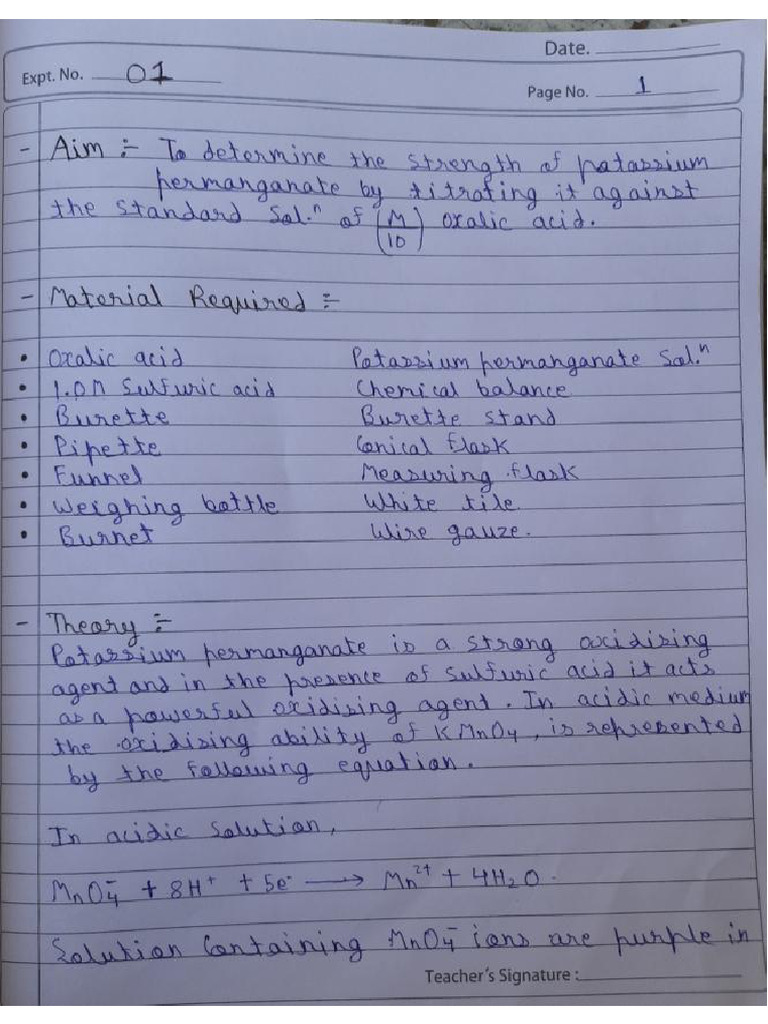 Date.
Expt. No. 01
Page No. 1
- Aim :- To determine the strength of potassium
permanganate by titrating it against
the standard Sol.ⁿ of (M/10) oxalic acid.
- Material Required :-
• Oxalic acid Potassium permanganate Sol.ⁿ
• 1.0n Sulfuric acid Chemical balance
• Burette Burette stand
• Pipette Conical flask
• Funnel Measuring flask
• Weighing bottle White tile.
• Burnet Wire gauze.
- Theory :-
Potassium permanganate is a strong oxidising
agent and in the presence of sulfuric acid it acts
as a powerful oxidising agent. In acidic medium
the oxidizing ability of KMnO₄, is represented
by the following equation.
In acidic solution,
MnO₄⁻ + 8H⁺ + 5e⁻ ⟶ Mn²⁺ + 4H₂O.
Solution Containing MnO₄⁻ ions are purple in
Teacher's Signature :